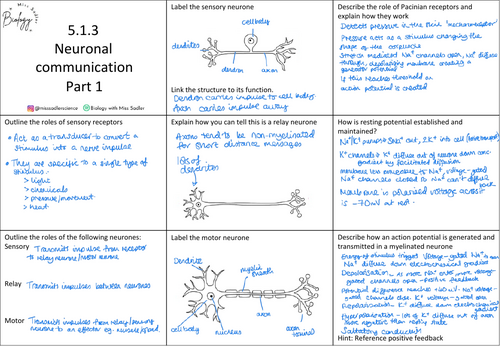 Miss Sadler
Biology
5.1.3
Neuronal
communication
Part 1
@misssadlerscience
Biology with Miss Sadler
Label the sensory neurone
cell body
dendrites
dendron
axon
Link the structure to its function.
Dendron carries impulse to cell body
Axon carries impulse away
Describe the role of Pacinian receptors and
explain how they work
Detects pressure in the skin "mechanoreceptor"
Pressure acts as a stimulus changing the
shape of the corpuscle
Stretch mediated Na⁺ channels open, Na⁺ diffuse
through, depolarising membrane creating a
generator potential
If this reaches threshold an
action potential is created
Outline the roles of sensory receptors
• Act as a transducer to convert a
stimulus into a nerve impulse
• They are specific to a single type of
stimulus
> light
> chemicals
> pressure/movement
> heat
Explain how you can tell this is a relay neurone
Axons tend to be non-myelinated
for short distance messages
lots of
dendrites
How is resting potential established and
maintained?
Na⁺/K⁺ pumps 3Na⁺ out, 2K⁺ into cell
K⁺ channels K⁺ diffuse out of neurone down conc
gradient by facilitated diffusion
Membrane less permeable to Na⁺, voltage-gated
Na⁺ channels closed so Na⁺ can't diffuse
back
Membrane is polarised voltage across
is -70mV at rest
Outline the roles of the following neurones:
Sensory Transmits impulse from receptor
to relay neurone/motor neurone
Relay Transmits impulses between neurones
Motor Transmits impulses from relay/sensory
neurone to an effector eg muscle/gland
Label the motor neurone
Dendrite
myelin
sheath
cell body
nucleus
axon
axon
terminal
Describe how an action potential is generated and
transmitted in a myelinated neurone
Energy of stimulus triggers voltage-gated Na⁺ to open
Na⁺ diffuse down electrochemical gradient
Depolarisation - as more Na⁺ enter more voltage
gated channels open - positive feedback
Potential difference reaches +40mV. Na⁺ voltage-
gated channels close. K⁺ voltage-gated open
Repolarisation K⁺ diffuse down electrochemical
gradient
Hyperpolarisation - lots of K⁺ diffuse out of axon
more negative than resting state
Saltatory conduction
Hint: Reference positive feedback